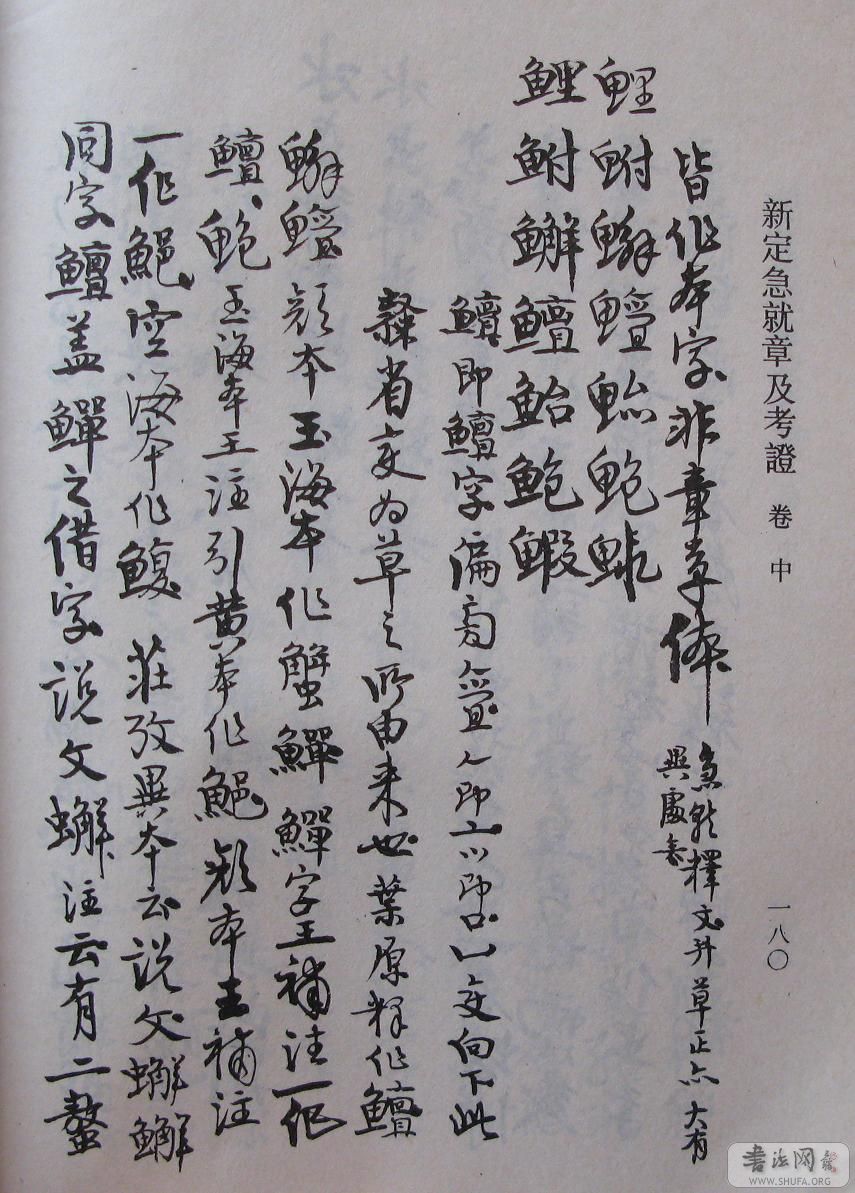 新定急就章及考證 卷中
一八〇
皆作本字非章草体
急就釋文并草正亦大有
異處矣
鯉鮒蠏鱣鮐鮑鰕
鯉鮒蠏鱣鮐鮑鰕
鱣即鱣字偏旁
即亠即口变向下此
隸省变为草之所由来也葉原釋作鱣
蠏鱣顏本玉海本作蟹鱓鱓字王補注一作
鱣鮑玉海本王注引黄本作䱋顏本王補注
一作䱋空海本作鰒莊攷異本云說文蠏
同字鱣盖鱓之借字說文蠏注云有二螯
書法网
WWW.SHUFA.ORG